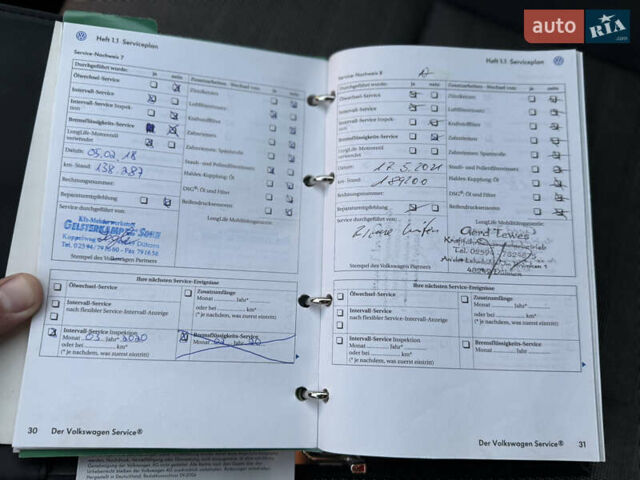 auto RIA
.com
Heft 1.1 Serviceplan
Service-Nachweis 7
Durchgeführt wurde: ja nein
Ölwechsel-Service
Intervall-Service
Intervall-Service Inspek-
tion
Bremsflüssigkeits-Service
LongLife-Motorenöl
verwendet
Datum: 05.02.18
km-Stand: 138.287
Rechnungsnummer:
Reparaturempfehlung
Service durchgeführt von:
Zusatzarbeiten - Wechsel von: ja nein
Zündkerzen
Luftfiltereinsatz
Kraftstofffilter
Zahnriemen
Zahnriemen-Spannrolle
Staub- und Pollenfiltereinsatz
Haldex-Kupplung: Öl
DSG®: Öl und Filter
Reifendruckessenzen
LongLife Mobilitätsgarantie:
Kfz-Meisterbetrieb
GEISTERKAMP & SOHN
Tel. 02594/791660 - Fax 791658
Stempel des Volkswagen Partners
Ihre nächsten Service-Ereignisse
Ölwechsel-Service
Zusatzumfänge
Monat Jahr*
Intervall-Service
nach flexibler Service-Intervall-Anzeige
Intervall-Service Inspektion
Monat 03 Jahr* 2020
oder bei km*
(* je nachdem, was zuerst eintritt)
Bremsflüssigkeits-Service
Monat 02 Jahr 20
30 Der Volkswagen Service®
Heft 1.1 Serviceplan
Service-Nachweis 8
Durchgeführt wurde: ja nein
Ölwechsel-Service
Intervall-Service
Intervall-Service Inspek-
tion
Bremsflüssigkeits-Service
LongLife-Motorenöl
verwendet
Datum: 17.5.2021
km-Stand: 189200
Rechnungsnummer:
Reparaturempfehlung
Service durchgeführt von:
Zusatzarbeiten - Wechsel von: ja nein
Zündkerzen
Luftfiltereinsatz
Kraftstofffilter
Zahnriemen
Zahnriemen-Spannrolle
Staub- und Pollenfiltereinsatz
Haldex-Kupplung: Öl
DSG®: Öl und Filter
LongLife Mobilitätsgarantie:
Gerd Tewes
48249 Dülmen
Stempel des Volkswagen Partners
Ihre nächsten Service-Ereignisse
Ölwechsel-Service
Zusatzumfänge
Monat Jahr*
Intervall-Service
nach flexibler Service-Intervall-Anzeige
Intervall-Service Inspektion
Monat Jahr*
oder bei km*
(* je nachdem, was zuerst eintritt)
Bremsflüssigkeits-Service
Monat Jahr
Der Volkswagen Service® 31